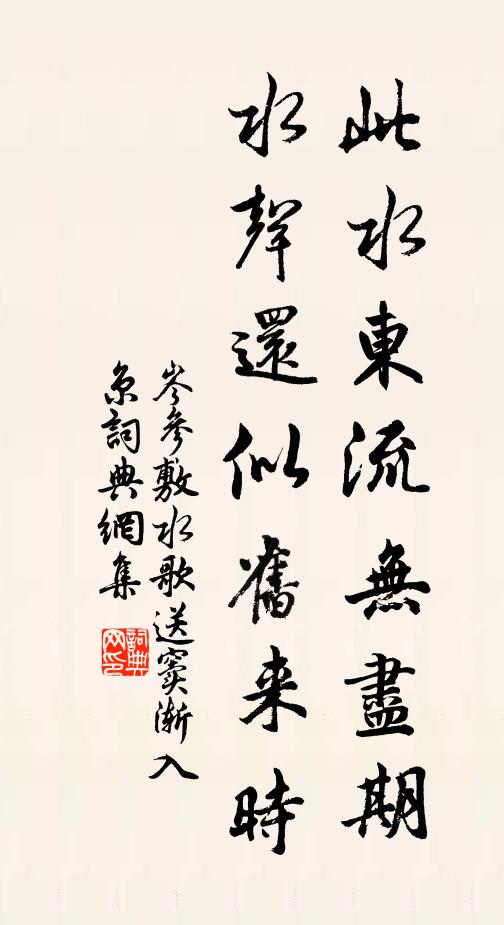 此水東流無盡期
水聲還似舊来時
岑參敷水歌送竇漸入
京詞典網集
詞典
网印